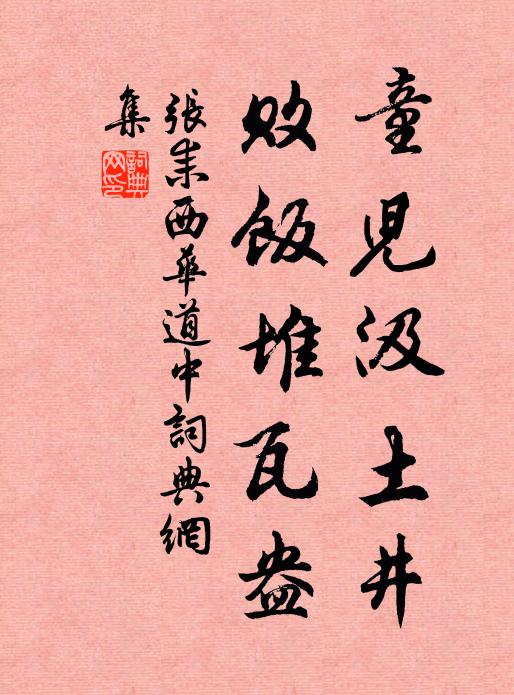 童兒汲土井
敗飯堆瓦盎
張耒西華道中詞典網
集
詞典
網印